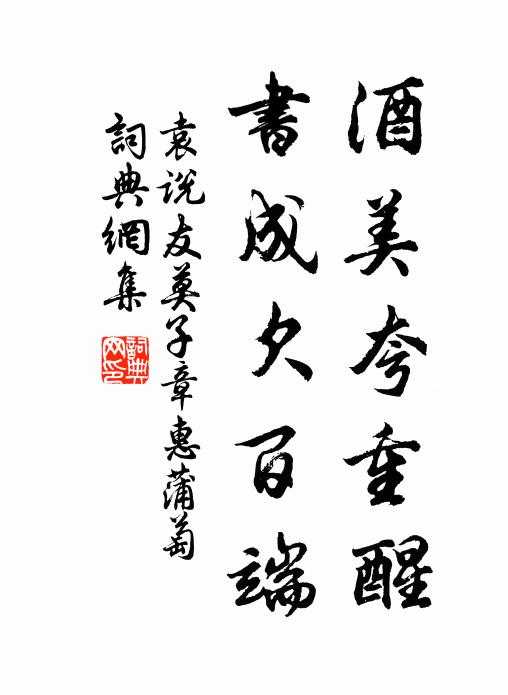 酒美夸重醒
書成欠百端
袁说友莫子章惠蒲萄
詞典網集
詞典网印